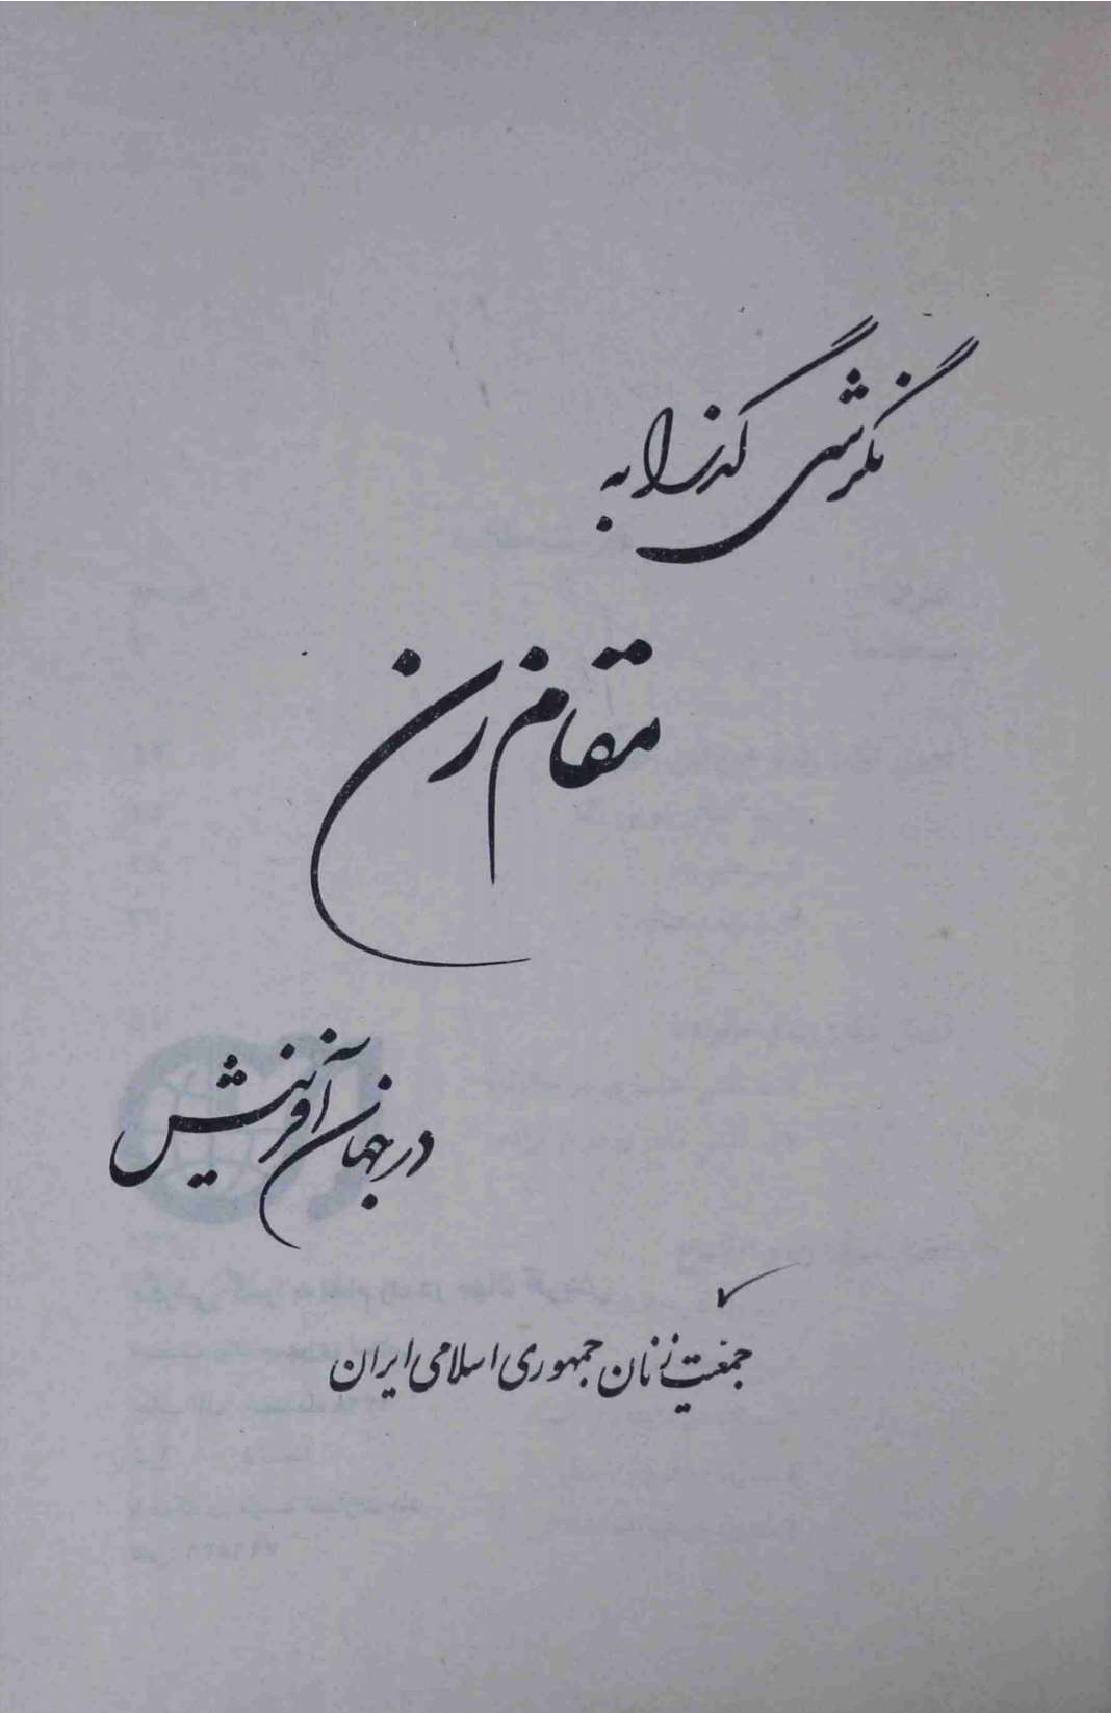 نگرشی گذرا به
مقام زن
در جهان آفرینش
جمعیت زنان جمهوری اسلامی ایران